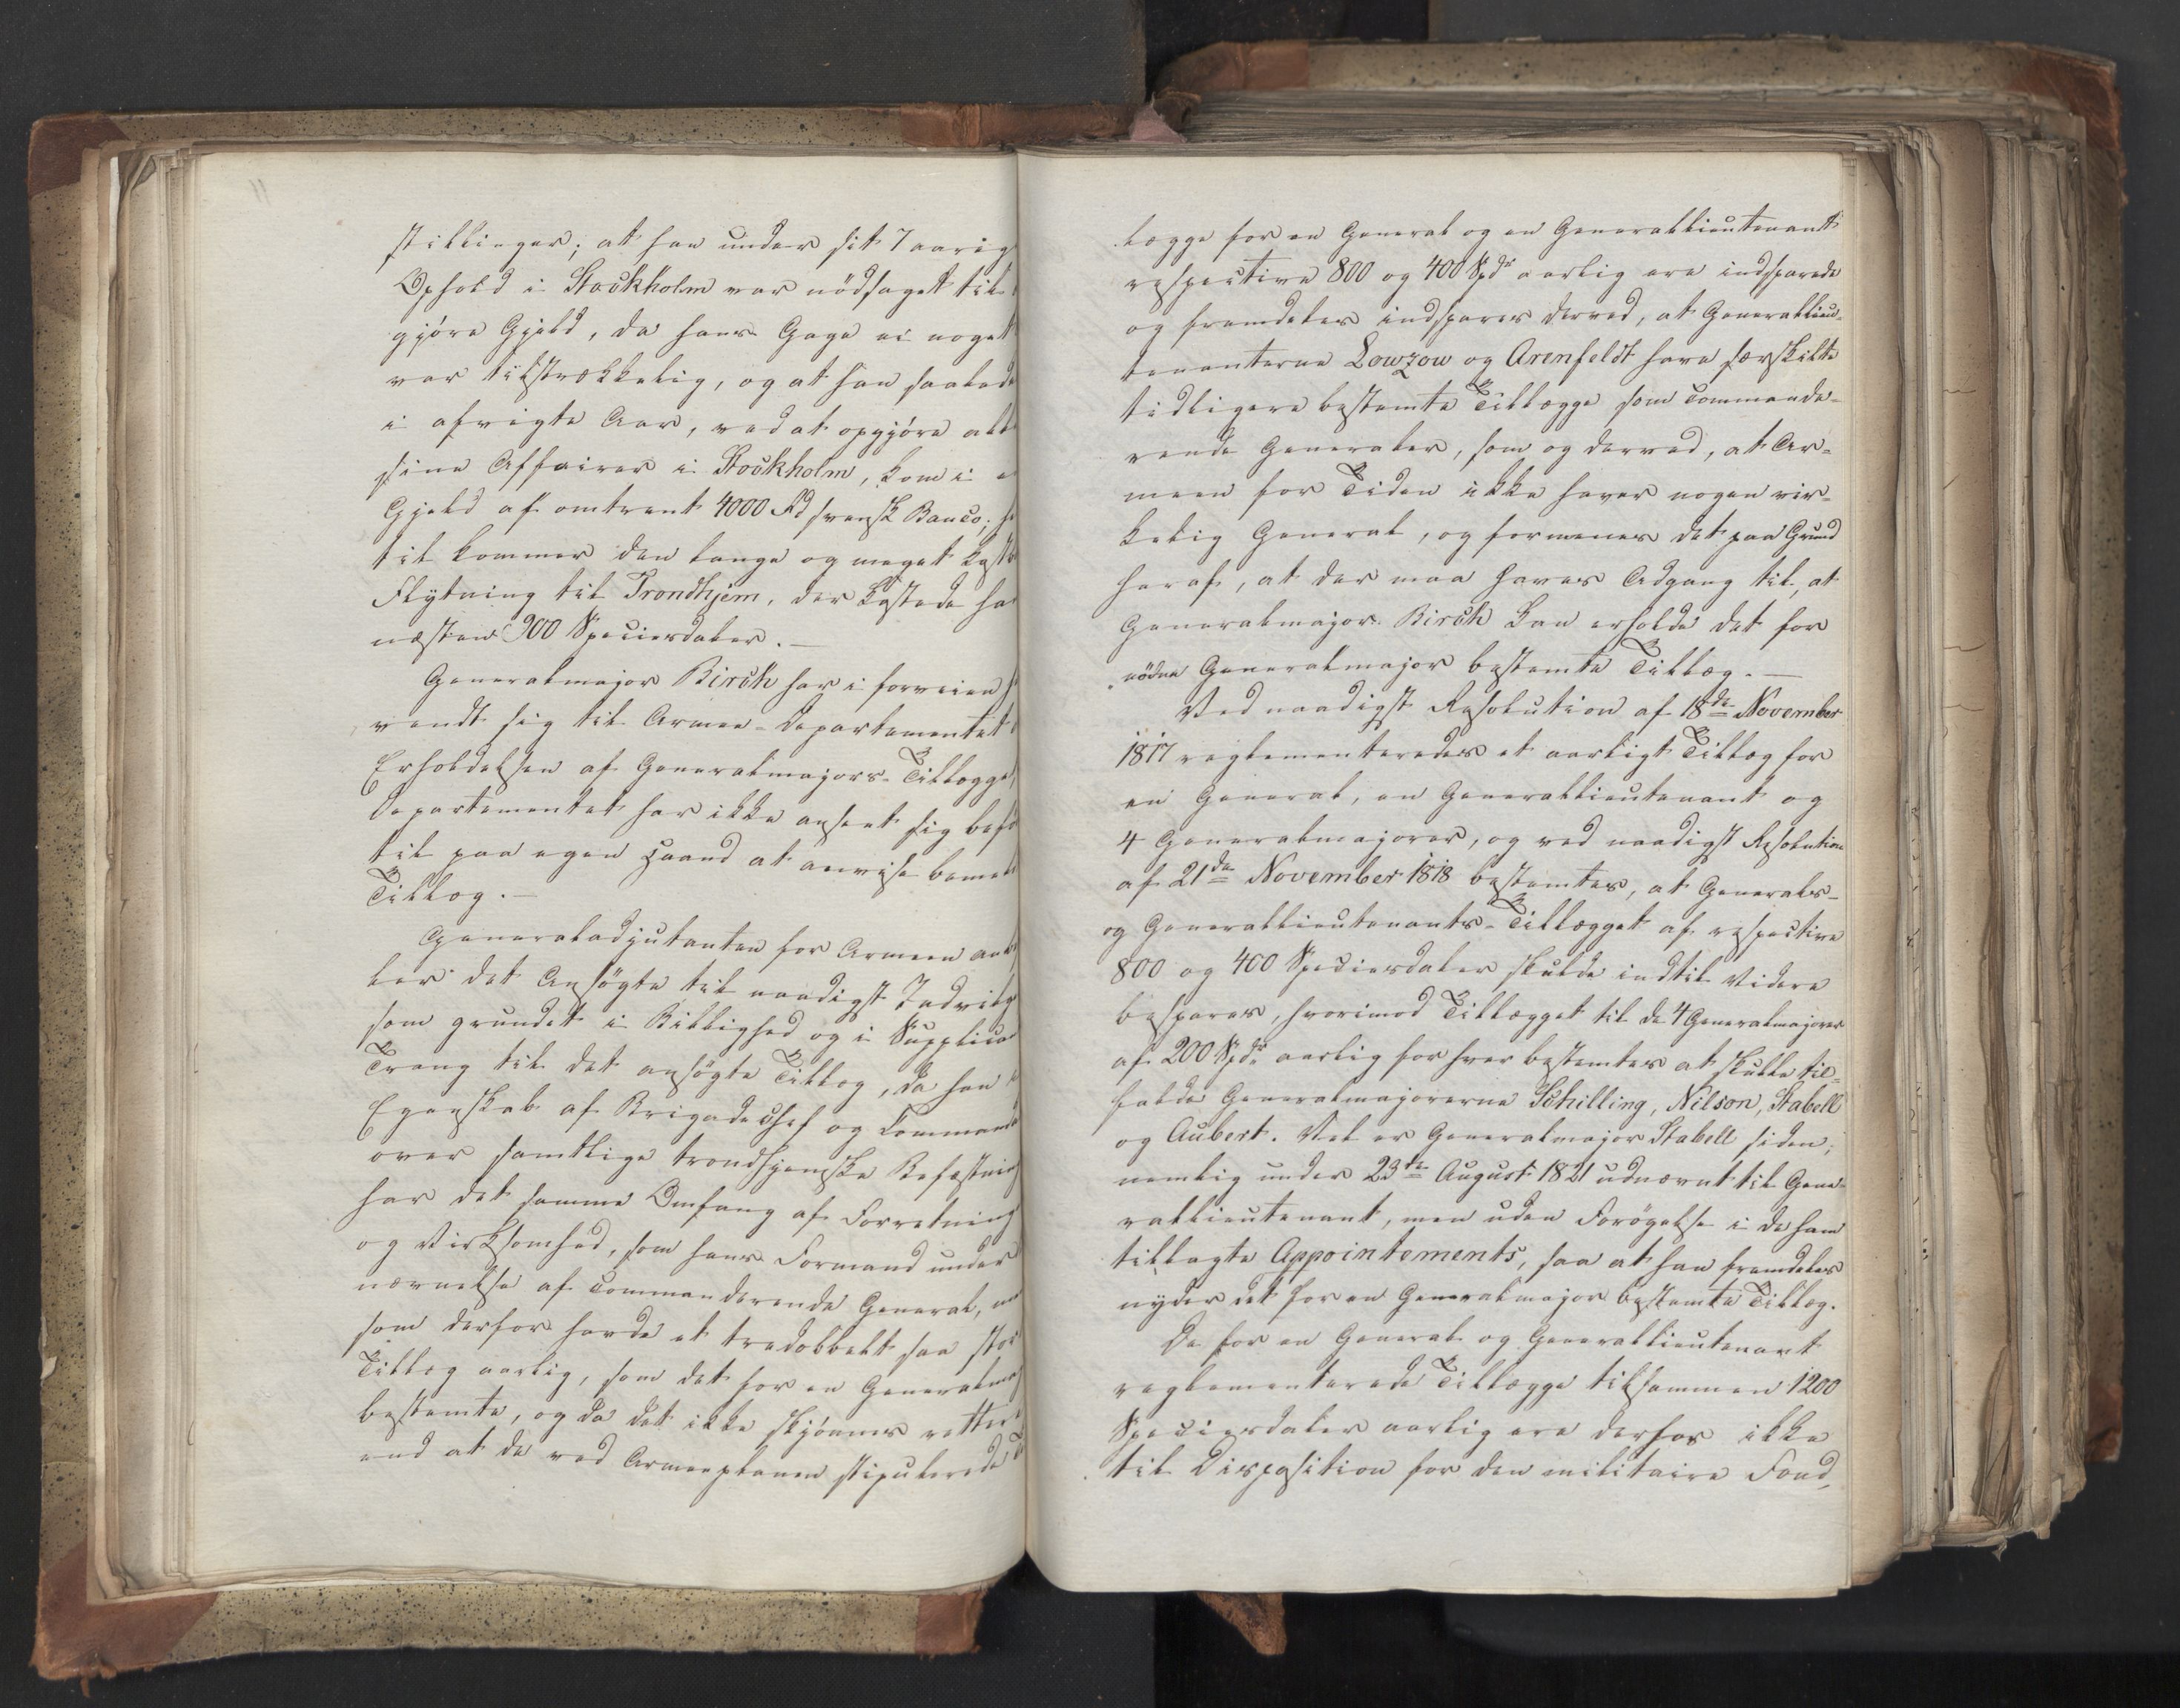 stillinger; at han under sit 7 aarig
Ophold i Stockholm var nödsaget til
gjöre Gjeld, da hans Gage ei noget
var tilstrækkelig, og at han saalede
i afvigte Aar, ved at opgjöre alle
sine Affairer i Stockholm, kom i e
Gjeld af omtrent 4000 Rd svensk Banco; he
til kommer den lange og meget kost
Flytning til Trondhjem, der kostede ha
næsten 900 Speciesdaler.—
Generalmajor Birch har i forveien h
vendt sig til Armee-Departementet
Erholdelsen af Generalmajors-Tillægget,
Departementet har ikke anseet sig befö
til paa egen Haand at anvise bemel
Tillæg.—
Generaladjutanten for Armeen anb
ler det Ansögte til naadigst Indvilg
som grundet i Billighed og i Supplica
Trang til det ansögte Tillæg, da han
Egenskab af Brigadechef og Commanda
over samtlige trondhjemske Befæstning
har det samme Omfang af Forretning
og Virksomhed, som hans Formand under
nævnelse af commanderende General, m
som derfor havde et tredobbelt saa stor
Tillæg aarlig, som det for en Generalmaj
bestemte, og da det ikke skjönnes rettere
end at de ved Armeeplanen stipulerede T
lægge for en General og en Generallieutenant
respective 800 og 400 Spdr aarlig ere indsparede
og fremdeles indspares derved, at Generallieu-
tenanterne Lowzow og Arenfeldt have særskilte
tidligere bestemte Tillægge som Commande-
rende Generaler, som og derved, at Ar-
meen for Tiden ikke haver nogen vir-
kelig General, og formenes det paa Grund
heraf, at der maa haves Adgang til, at
Generalmajor Birch kan erholde det for
nödne Generalmajor bestemte Tillæg.—
Ved naadigst Resolution af 18de November
1817 reglementeredes et aarligt Tillæg for
en General, en Generallieutenant og
4 Generalmajorer, og ved naadigst Resolution
af 21de November 1818 bestemtes, at Generals-
og Generallieutenants-Tillægget af respective
800 og 400 Speciesdaler skulde indtil Videre
bespares, hvorimod Tillægget til de 4 Generalmajorer
af 200 Spdr aarlig for hver bestemtes at skulle til-
falde Generalmajorerne Schilling, Nilson, Stabell
og Aubert. Vel er Generalmajor Stabell siden,
nemlig under 23de August 1821 udnævnt til Gene-
rallieutenant, men uden Forögelse i de ham
tillagte Appointements, saa at han fremdeles
nyder det for en Generalmajor bestemte Tillæg.
De for en General og Generallieutenant
reglementerede Tillægge tilsammen 1200
Speciesdaler aarlig ere derfor ikke
til Disposition for den militaire Fond,